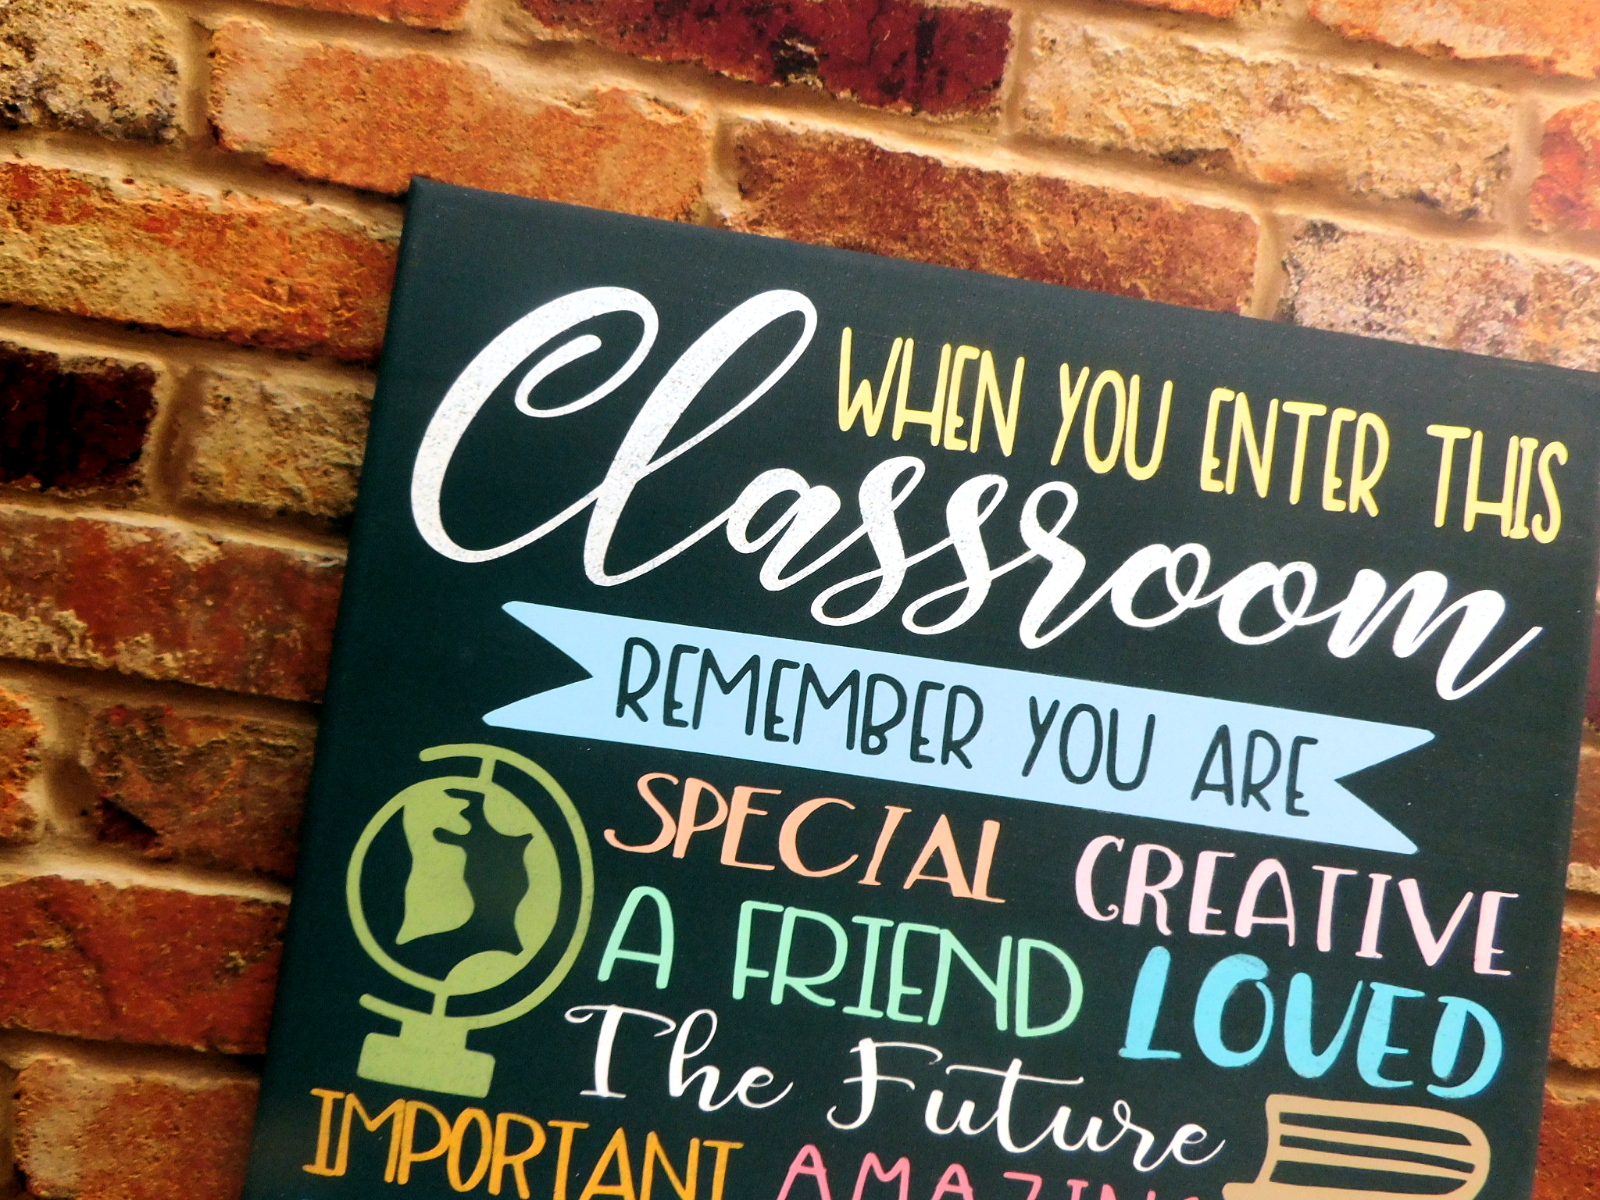 WHEN YOU ENTER THIS
Classroom
REMEMBER YOU ARE
SPECIAL CREATIVE
A FRIEND LOVED
The Future
IMPORTANT AMAZING